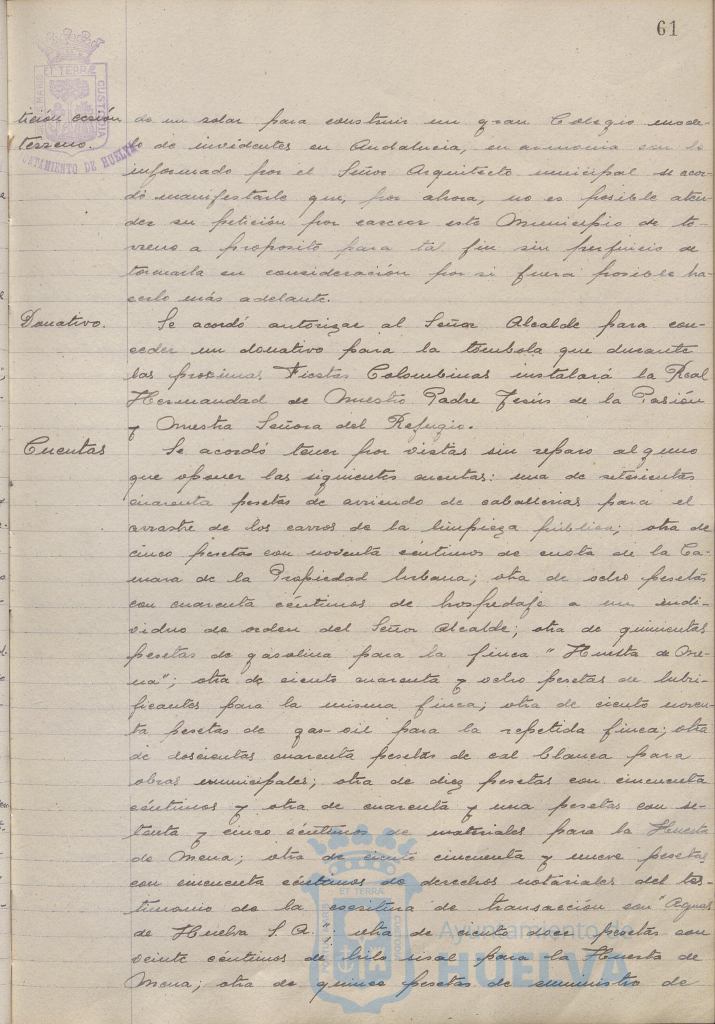 61
ET TERRÆ
CUSTODIA
tición cesión
terreno.
AYUNTAMIENTO DE HUELVA
de un solar para construir un gran Colegio mode-
lo de invidentes en Andalucia, en armonia con lo
informado por el Señor Arquitecto municipal se acor-
dó manifestarle que, por ahora, no es posible aten-
der su petición por carecer este Municipio de te-
rreno a proposito para tal fin sin perjuicio de
tomarla en consideración por si fuera posible ha-
cerlo más adelante.
Donativo.
Se acordó autorizar al Señor Alcalde para con-
ceder un donativo para la tombola que durante
las proximas Fiestas Colombinas instalará la Real
Hermandad de Nuestro Padre Jesús de la Pasión
y Nuestra Señora del Refugio.
Cuentas
Se acordó tener por vistas sin reparo alguno
que oponer las siguientes cuentas: una de setecientas
cuarenta pesetas de arriendo de caballerias para el
arrastre de los carros de la limpieza pública; otra de
cinco pesetas con noventa céntimos de cuota de la Cá-
mara de la Propiedad Urbana; otra de ocho pesetas
con cuarenta céntimos de hospedaje a un indi-
viduo de orden del Señor Alcalde; otra de quinientas
pesetas de gasolina para la finca "Huerta de Me-
na"; otra de ciento cuarenta y ocho pesetas de lubri-
ficantes para la misma finca; otra de ciento noven-
ta pesetas de gas-oil para la repetida finca; otra
de doscientas cuarenta pesetas de cal blanca para
obras municipales; otra de diez pesetas con cincuenta
céntimos y otra de cuarenta y una pesetas con se-
tenta y cinco céntimos de materiales para la Huerta
de Mena; otra de ciento cincuenta y nueve pesetas
con cincuenta céntimos de derechos notariales del tes-
timonio de la escritura de transacción con "Aguas
de Huelva S.A."; otra de ciento pesetas con
veinte céntimos de hilo sisal para la Huerta de
Mena; otra de quince pesetas de suministro de
ET TERRÆ
Ayuntamiento de
HUELVA